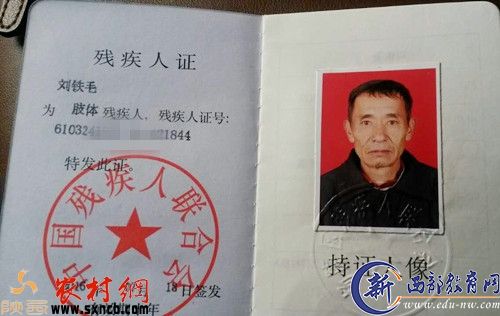 残疾人证
刘铁毛
为 肢体 残疾人, 残疾人证号:
610324 21844
特发此证。
中国残疾人联合会
18日签发
持证人像
陕西
农村網
www.sxncb.com
年
新 西部教育网
www.edu-nw.com